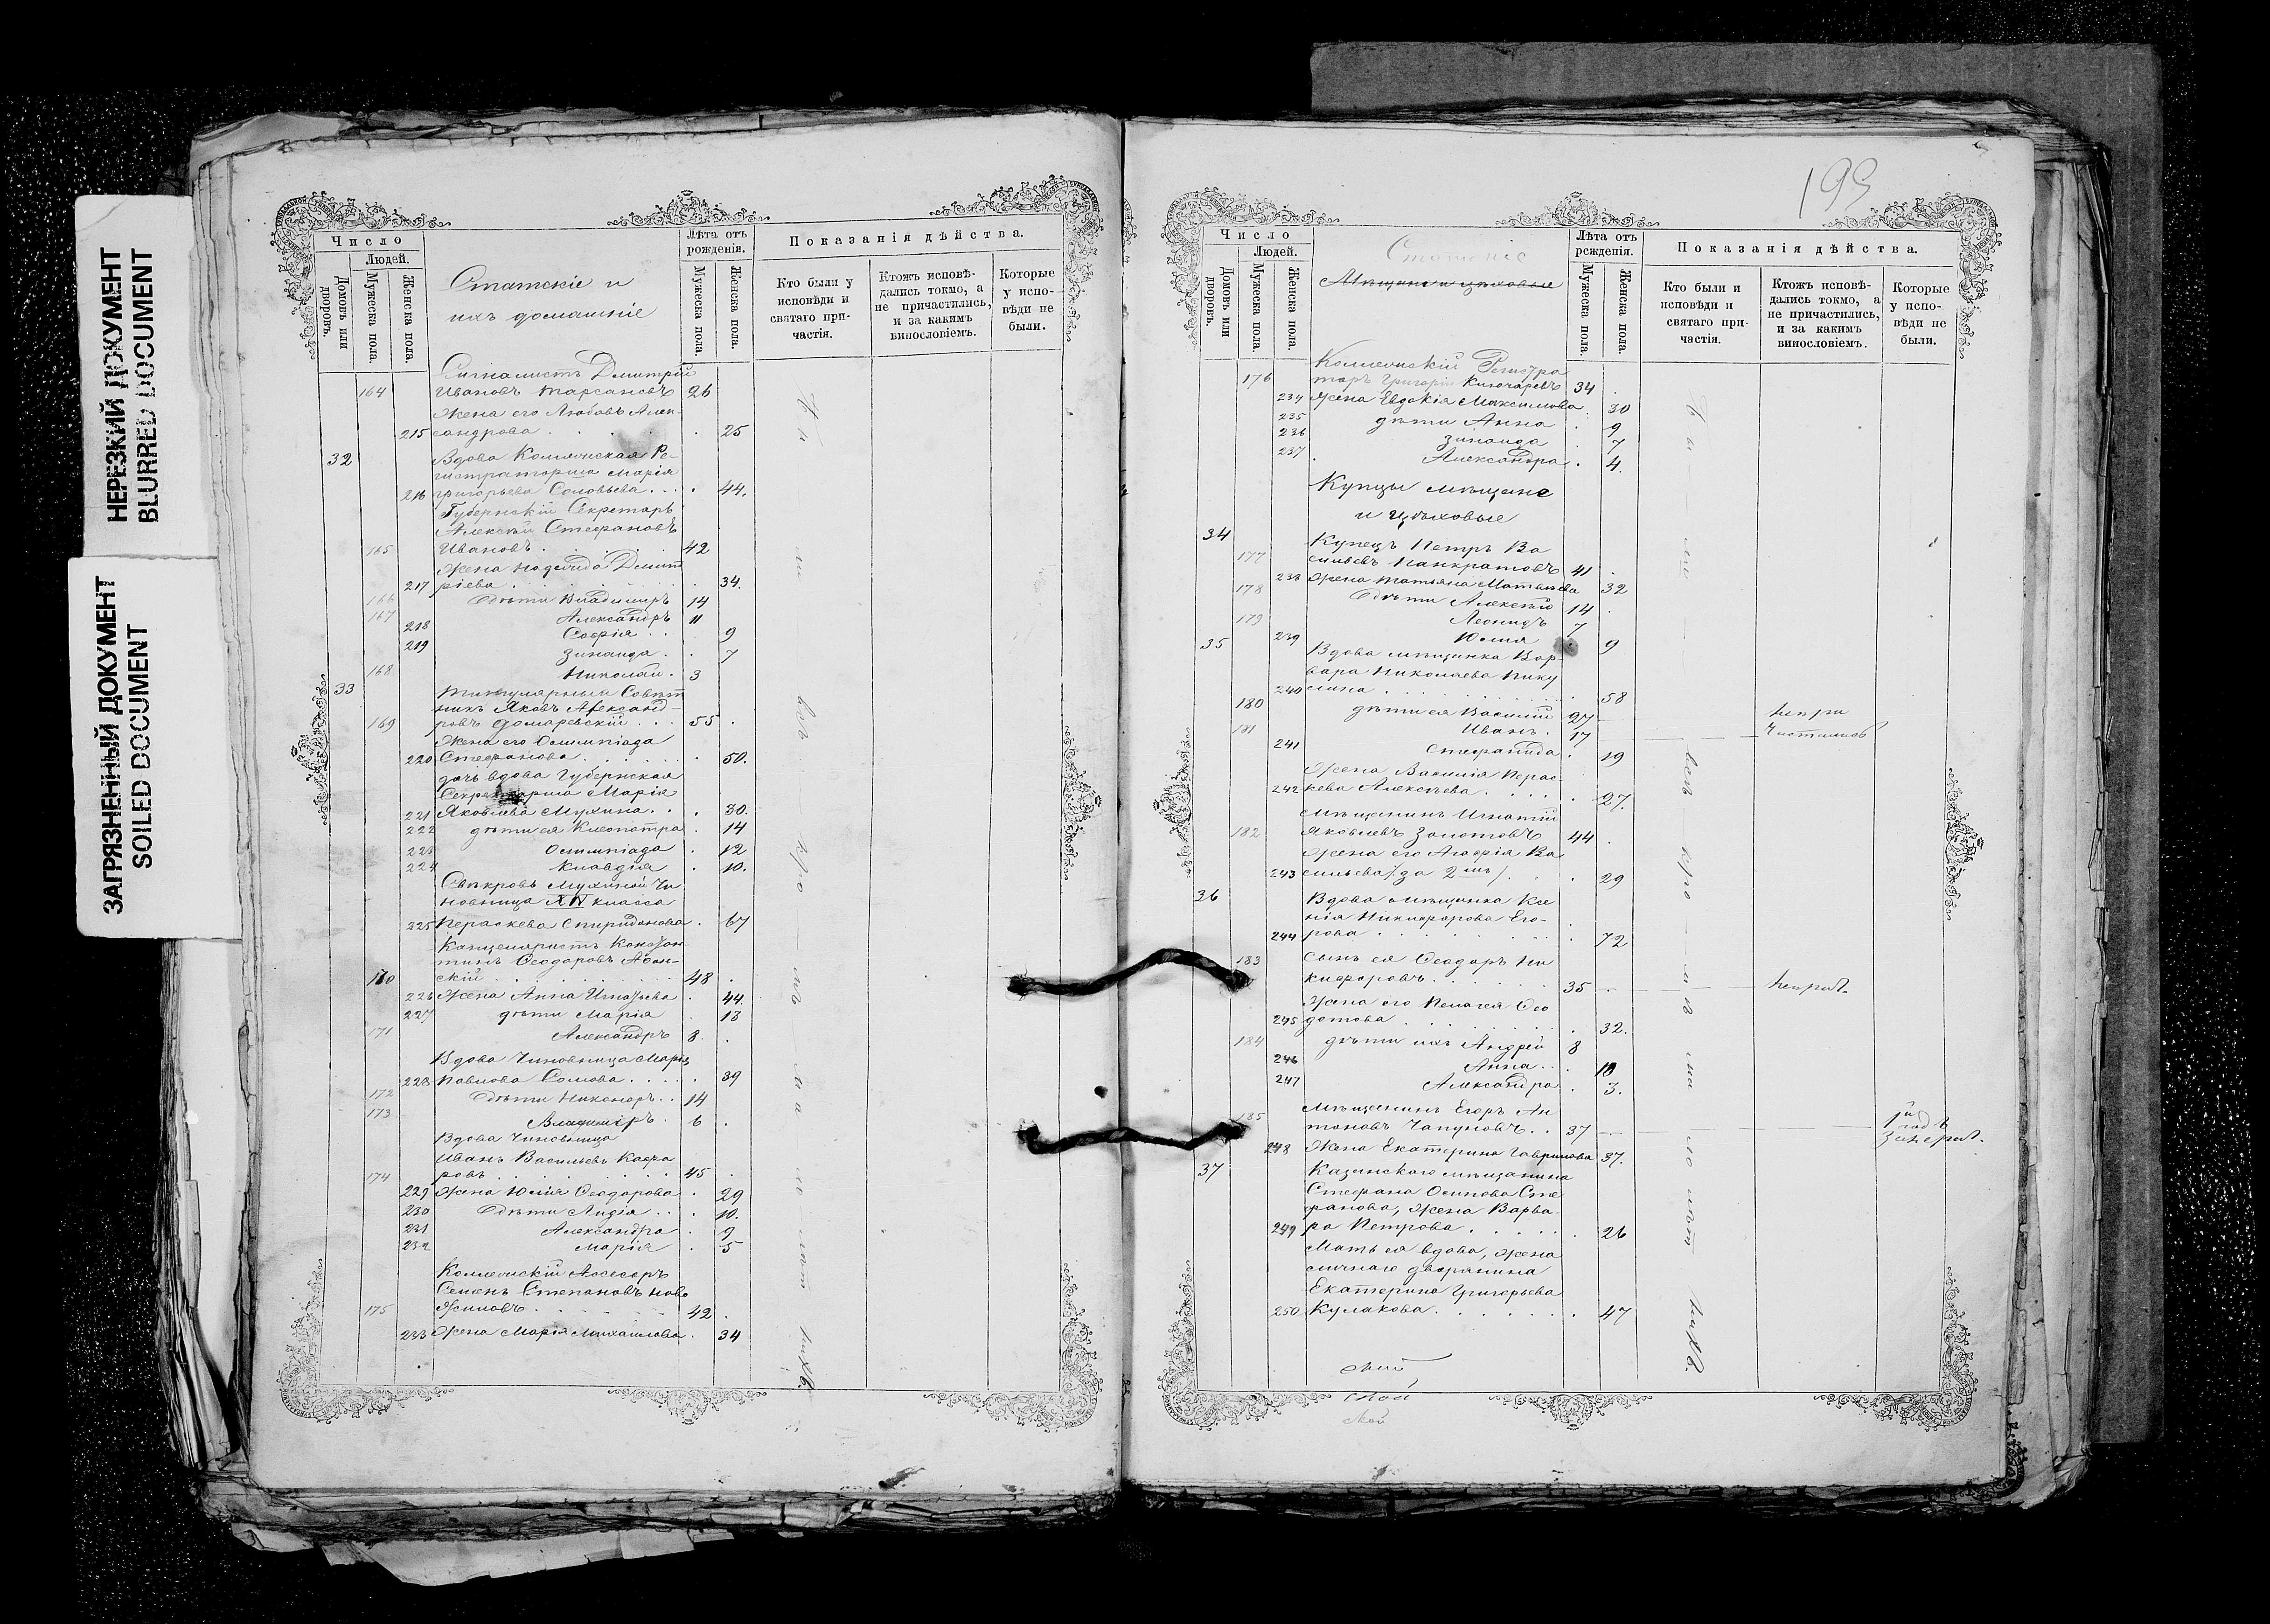 НЕРЕЗКИЙ ДОКУМЕНТ
BLURRED DOCUMENT
ЗАГРЯЗНЕННЫЙ ДОКУМЕНТ
SOILED DOCUMENT
Число
Людей.
Домовъ или дворовъ.
Мужеска пола.
Женска пола.
Статскіе и
ихъ домашніе
Лѣта отъ рожденія.
Мужеска пола.
Женска пола.
Показанія дѣйства.
Кто были у исповѣди и святаго причастія.
Ктожъ исповѣдались токмо, а не причастились, и за какимъ винословіемъ.
Которые у исповѣди не были.
Сигналистъ Дмитрій
164 Ивановъ 26
Жена его Любовь Алек-
215 сандрова 25
32 Вдова Коллежская Ре-
гистраторша Марія
216 Григорьева Соловьева 44.
Губернскій Секретарь
Алексѣй Стефановъ
165 Ивановъ 42
Жена Надежда Дмит
217 ріева 34.
166 Дѣти Владиміръ 14
167 Александръ 11
218 Софія 9
219 Зинаида 7
168 Николай 3
33 Титулярный Совѣт
никъ Яковъ Александ-
169 ровъ 55
Жена его Олимпіада
220 Стефанова 50.
дочь вдова Губернская
Секретарша Марія
221 Яковлева Мухина 30.
222 дѣти ея Клеопатра 14
223 Олимпіада 12
224 Клавдія 10.
Свѣкровь Мухиной Чи
новница XIV класса
225 Параскева Спиридонова 67
Канцеляристъ Констан
тинъ Ѳеодоровъ
170 скій 48
226 Жена Анна Игнатьева 44.
227 дѣти Марія 13
171 Александръ 8
Вдова Чиновница Марія
228 Павлова Сомова 39
172 Дѣти Никаноръ 14
173 Владиміръ 6
Вдова Чиновница
Иванъ Васильевъ
174 ровъ 45
229 Жена Юлія Ѳеодорова 29
230 Дѣти Лидія 10.
231 Александра 9
232 Марія 5
Коллежскій Ассесоръ
Семенъ Степановъ Ново
175 жиловъ 42
233 Жена Марія Михаилова 34
199
Число
Людей.
Домовъ или дворовъ.
Мужеска пола.
Женска пола.
Статскіе
Мѣщане и цѣховые
Лѣта отъ рожденія.
Мужеска пола.
Женска пола.
Показанія дѣйства.
Кто были и исповѣди и святаго причастія.
Ктожъ исповѣдались токмо, а не причастились, и за какимъ винословіемъ.
Которые у исповѣди не были.
Коллежскій Регистра
176 торъ Григорій Ключаревъ 34
234 Жена Евдокія Максимова 30
235 дѣти Анна 9
236 Зинаида 7
237 Александра 4.
Купцы мѣщане
и цѣховые
34 Купецъ Петръ Ва
177 сильевъ Панкратовъ 41
238 Жена Татьяна Матвѣева 32
178 Дѣти Алексѣй 14
179 Леонидъ 7
239 Юлія 9
35 Вдова мѣщанка Вар-
вара Николаева Пику
240 лина 58
180 дѣти ея Василій 27
181 Иванъ 17
241 Стефанида 19
Жена Василія Парас
242 кева Алексѣева 27.
Мѣщанинъ Игнатій
182 Яковлевъ Золотовъ 44
Жена его Агафія Ва
243 сильева/за 2мъ/ 29
36 Вдова мѣщанка Ксе
нія Никифорова Его-
244 рова 72
183 Сынъ ея Ѳеодоръ Ни
кифоровъ 35
Жена его Пелагея Ѳео
245 дотова 32.
184 дѣти ихъ Андрей 8
246 Анна 10
247 Александра 3.
Мѣщанинъ Егоръ Ан
185 тоновъ Чапуновъ 37
248 Жена Екатерина Гаврилова 37.
37 Казанскаго мѣщанина
Стефана Осипова Сте
фанова, Жена Варва-
249 ра Петрова 26
Мать ея вдова, жена
личнаго дворянина
Екатерина Григорьева
250 Кулакова 47